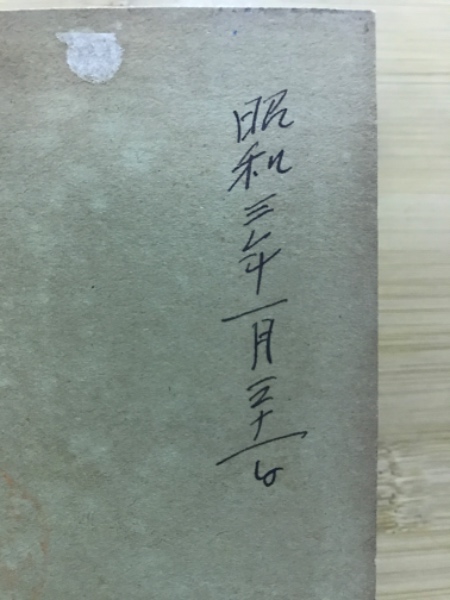 昭和三年一月三十一日